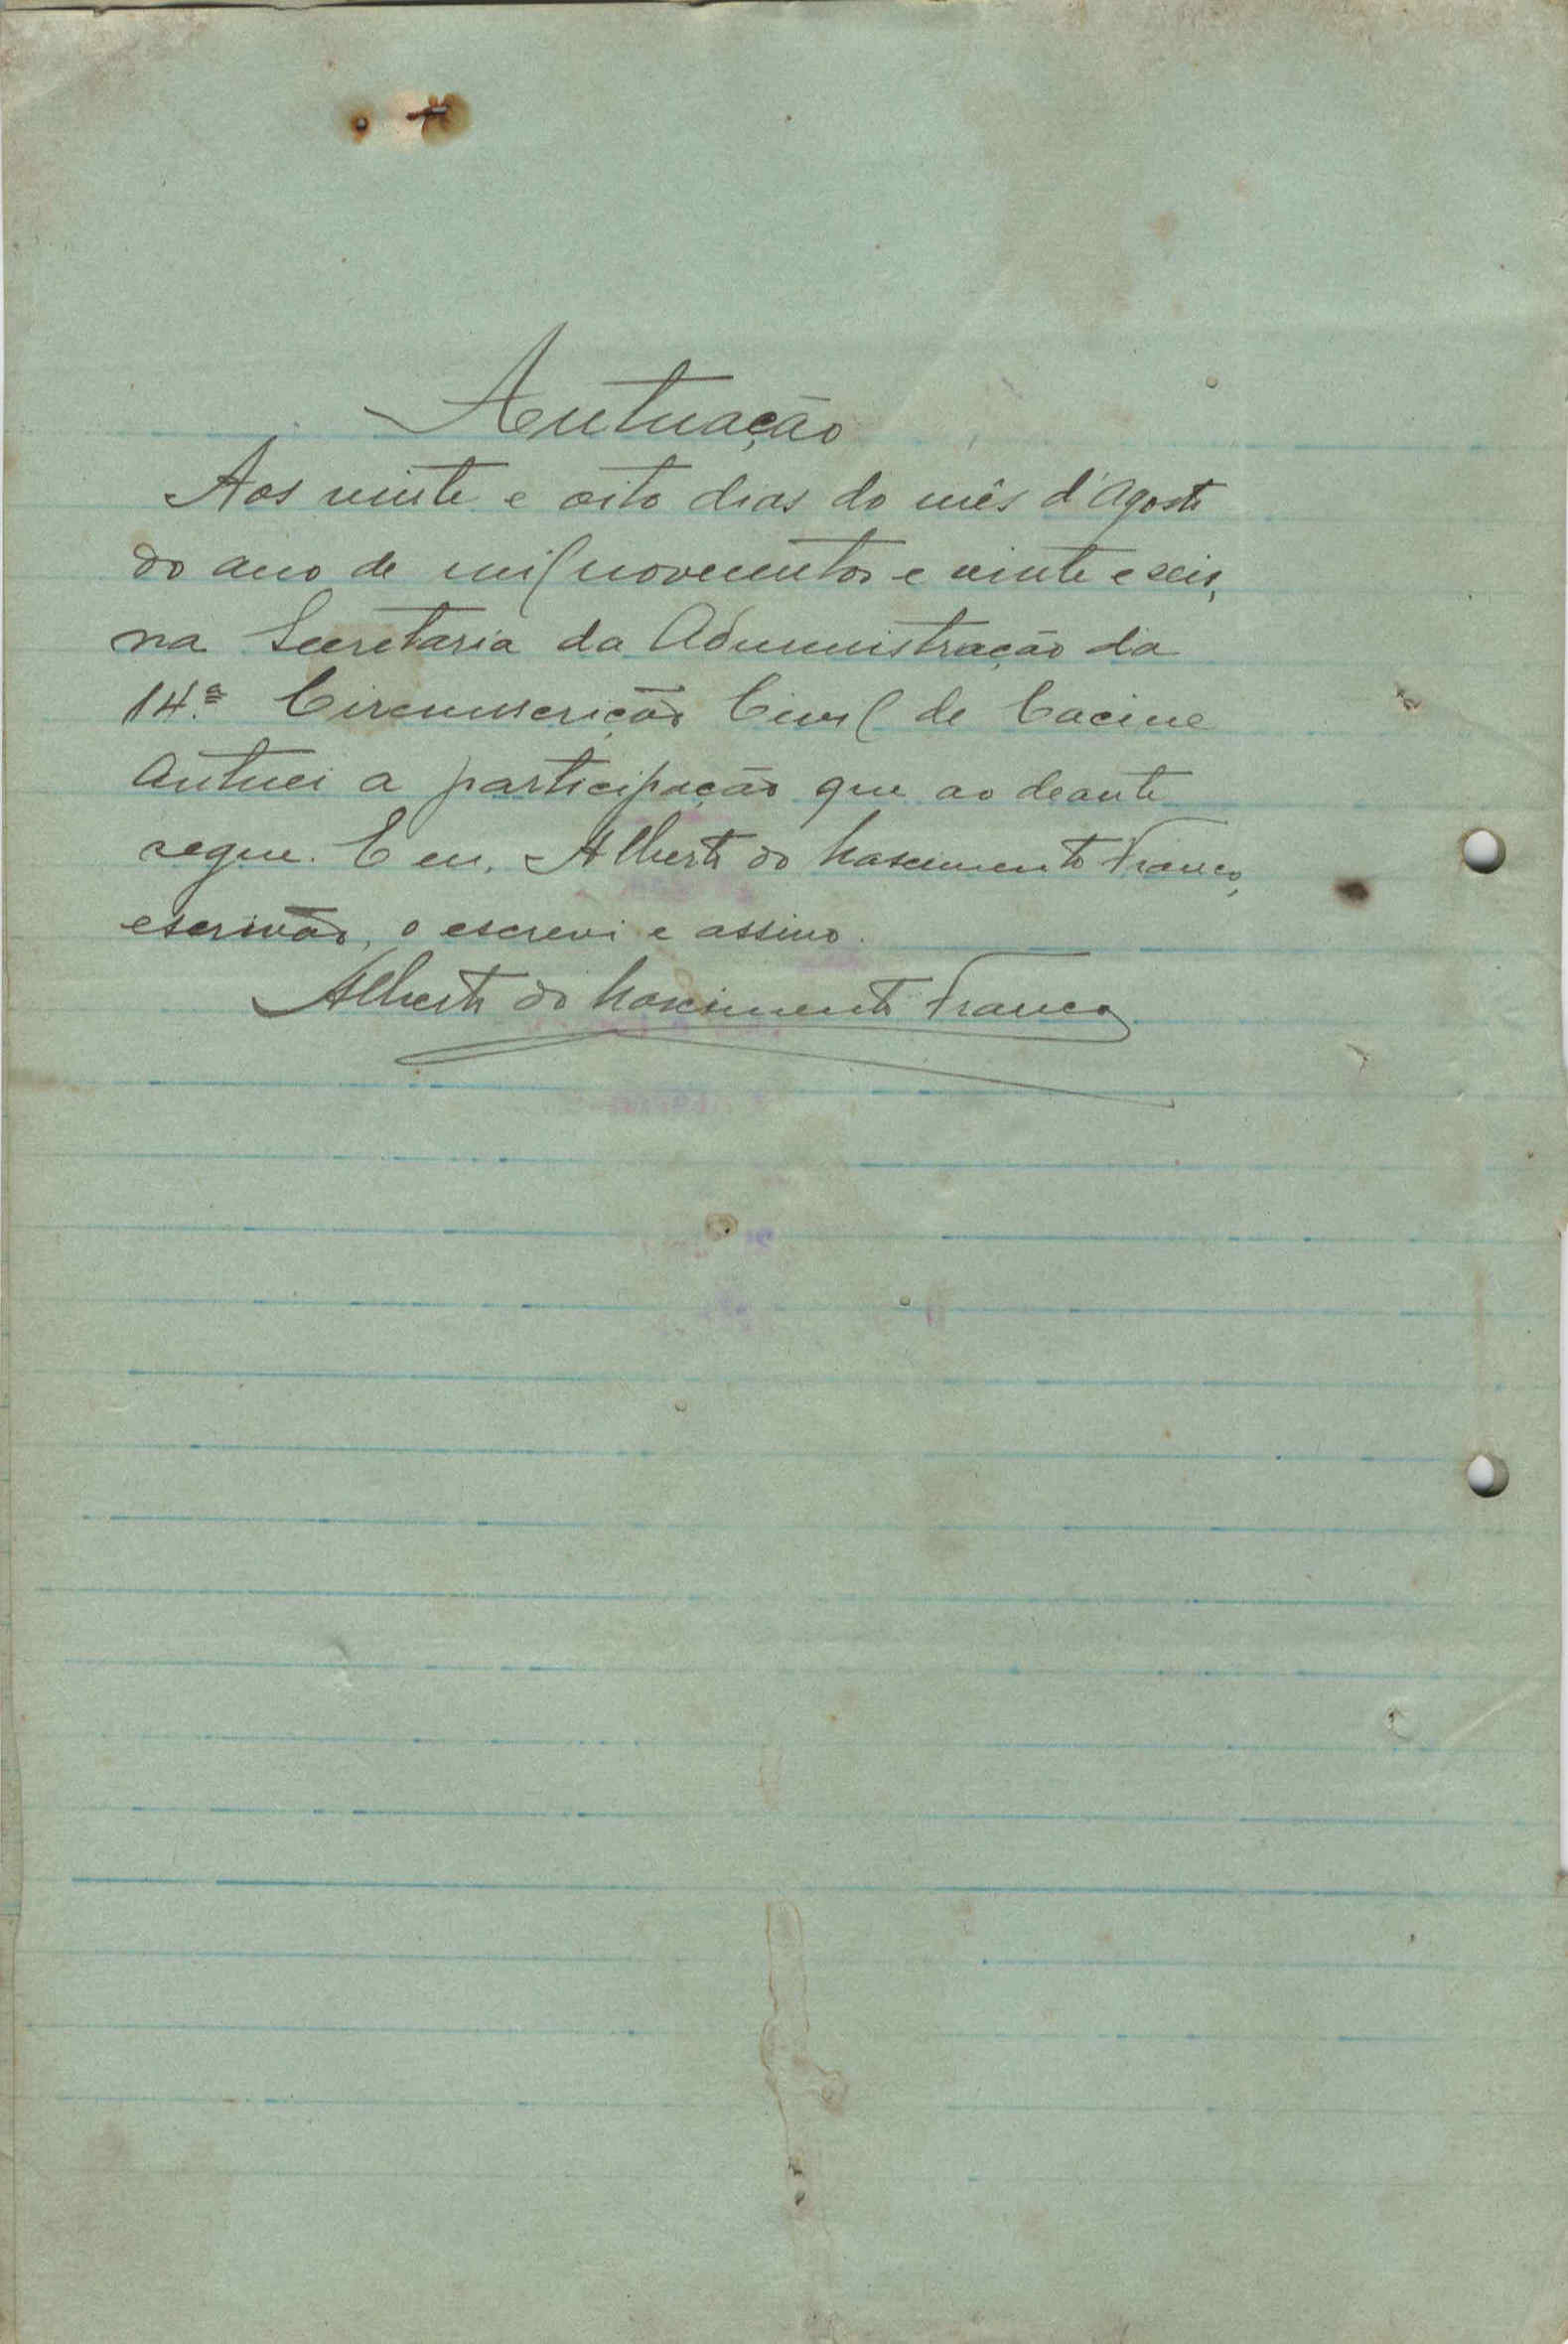 Autuação
Aos vinte e oito dias do mês d'Agosto
do ano de mil novecentos e vinte e seis,
na Secretaria da Administração da
14.ª Circunscrição Civil de Cacine
autuei a participação que ao deante
segue. E eu, Alberto do Nascimento Franco,
escrivão, o escrevi e assino.
Alberto do Nascimento Franco